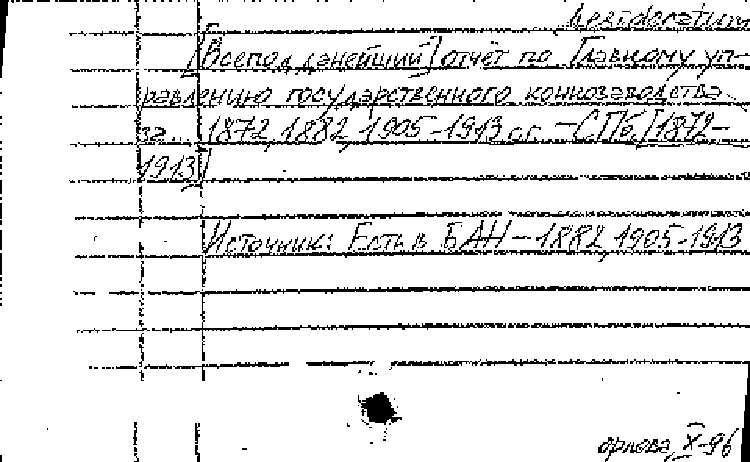 Desideratum
[Всепод данейший] отчёт по Главному уп-
равлению государственного коннозаводства
за... 1872, 1882, 1905-1913 гг. - СПб, [1872-
1913]
Источник: Есть в БАН - 1882, 1905-1913
орлова, X-96